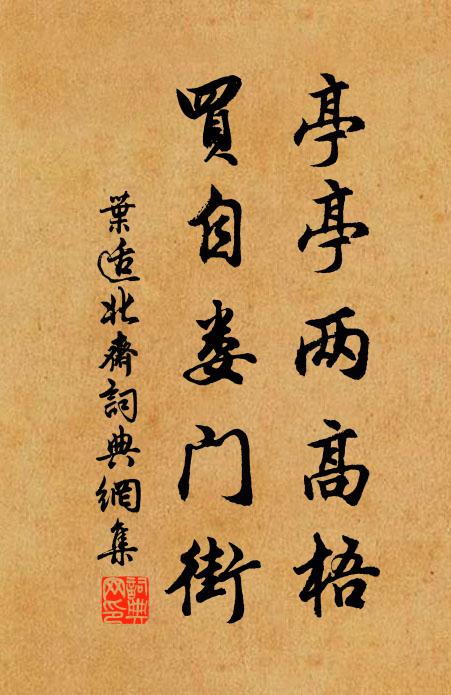 亭亭两高梧
買自娄门街
葉适北齋詞典網集
詞典网印